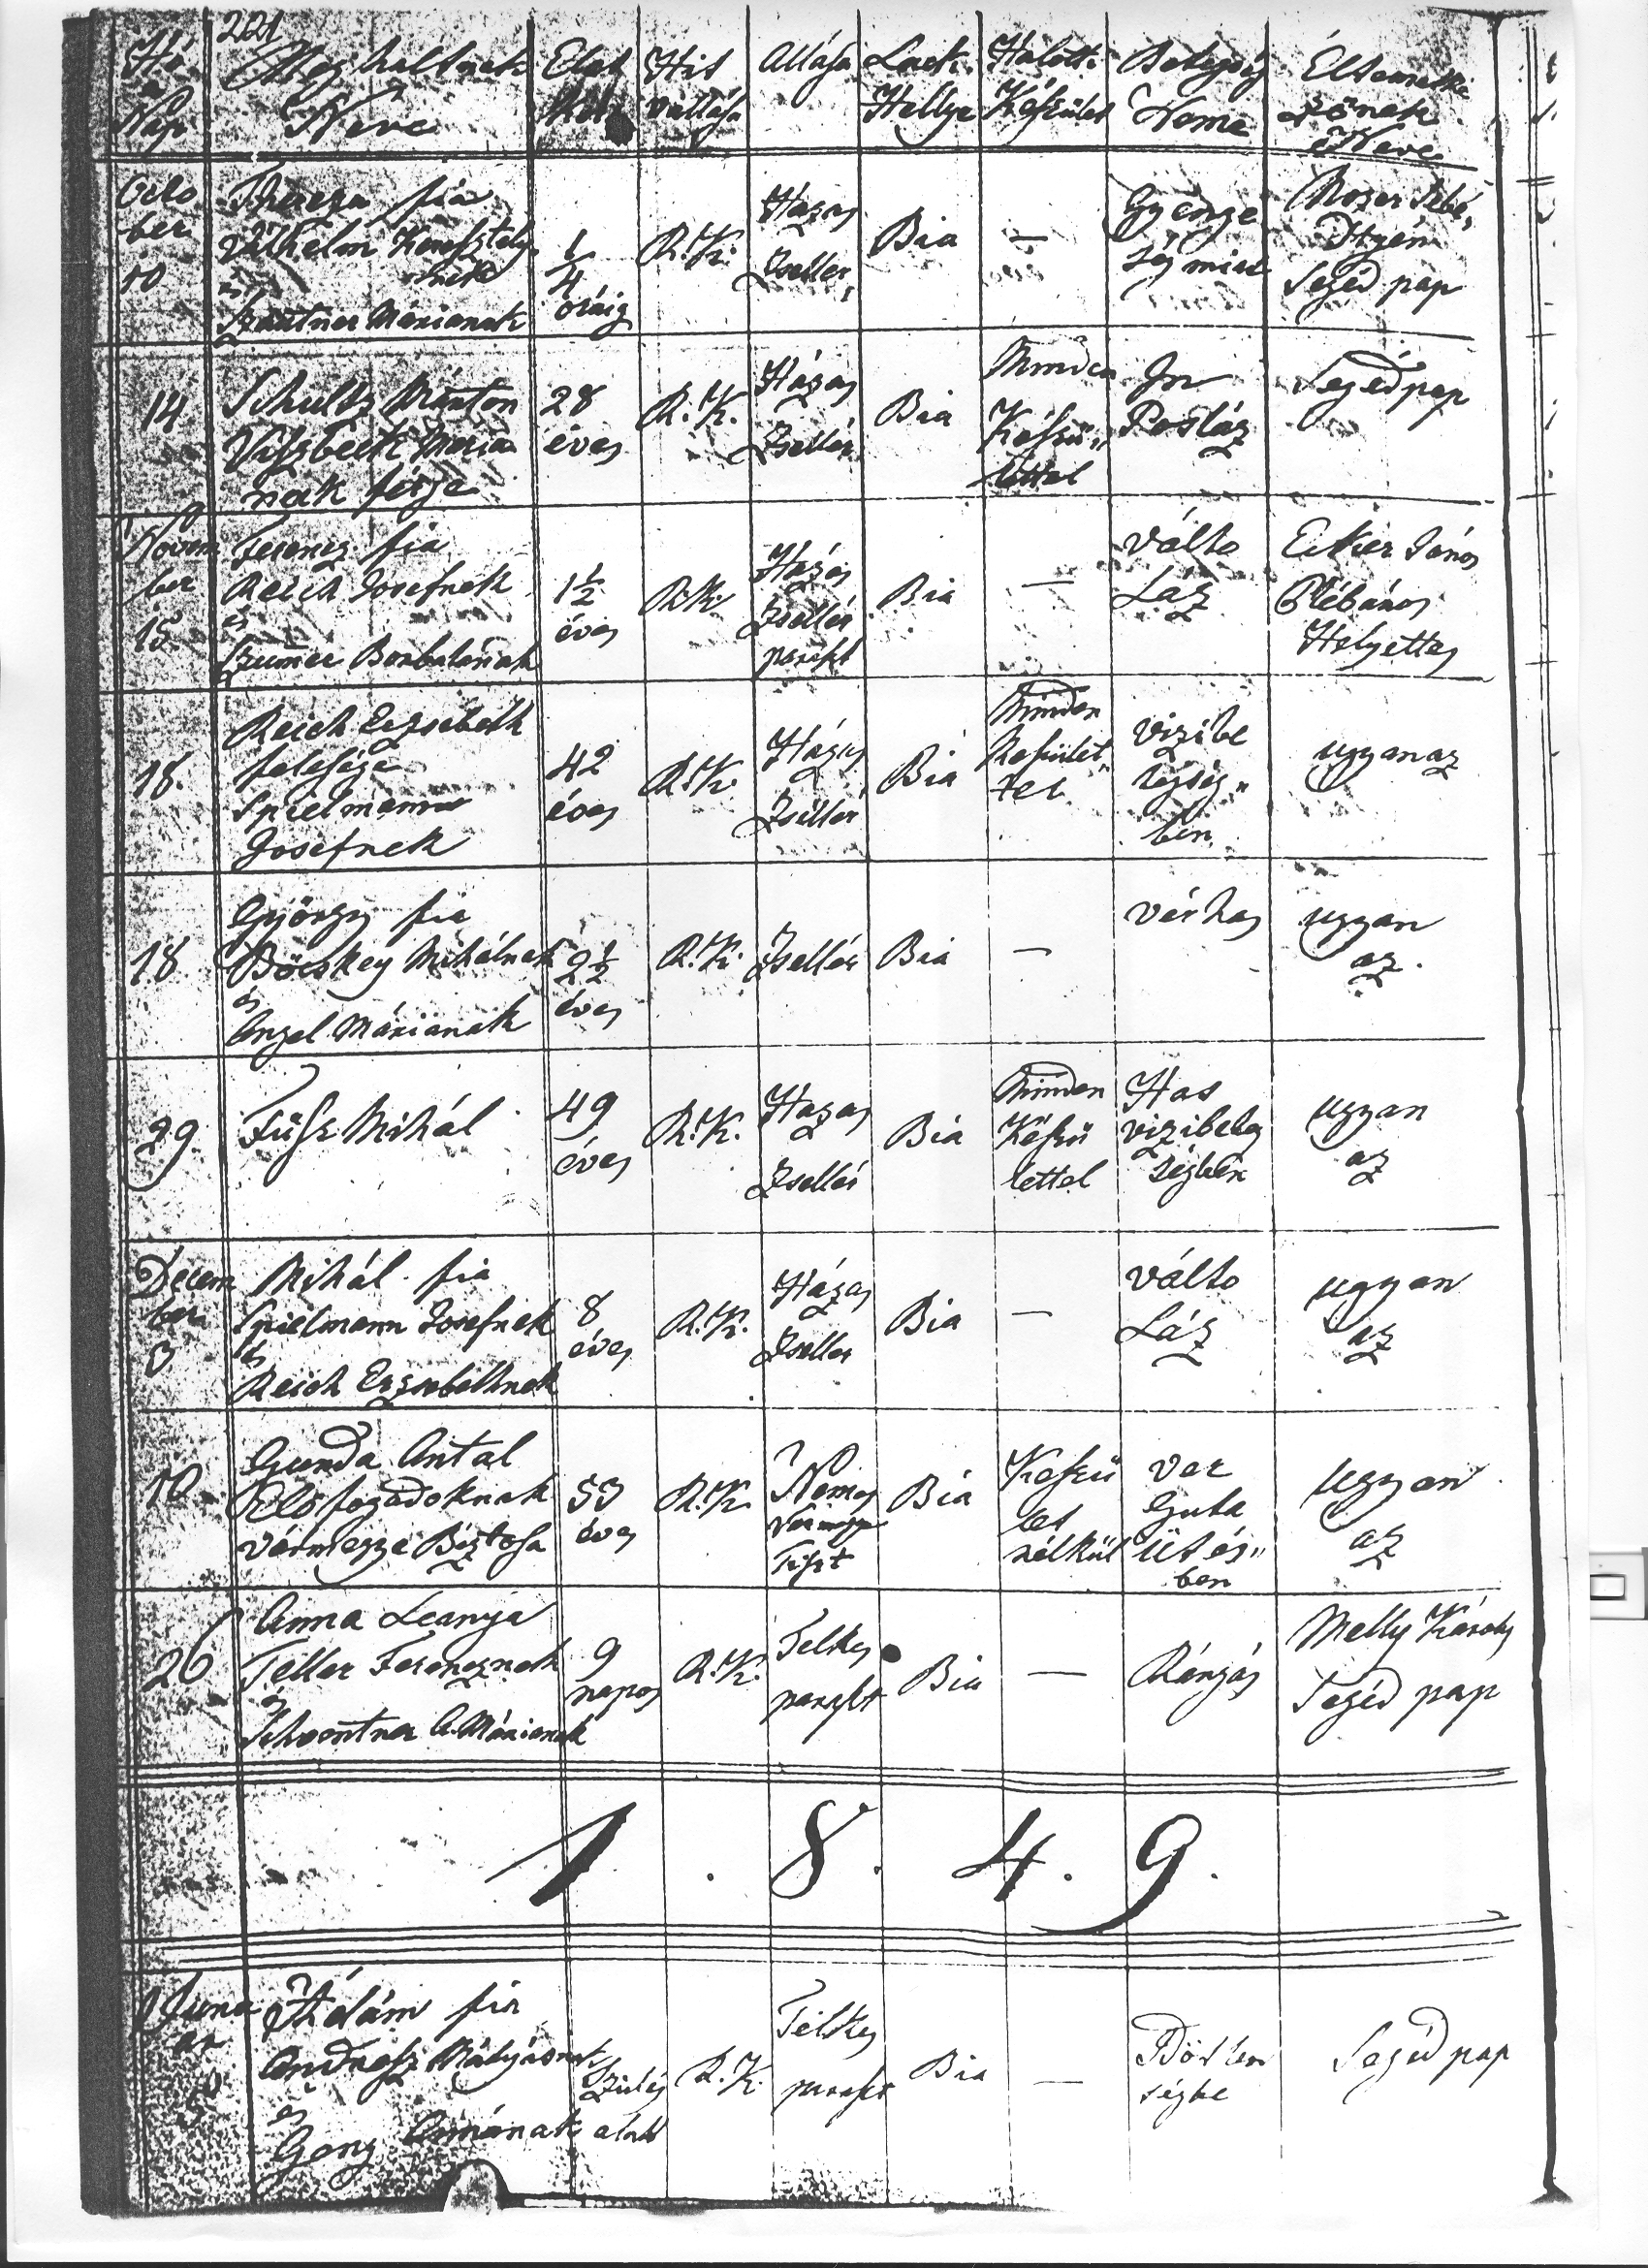 221
Hó Nap
Meghaltnak Neve
Élet
Hit vallása
Állása
Lak Hellye
Halotti Készület
Betegség Neme
Neve
October 10
fia
Vilhelm
és
Szautner Máriának
1/4 óráig
R. K.
Házas Zsellér
Bia
—
Gyengeség miat
Segéd pap
14
Schultz Márton
Máriának férje
28 éves
R. K.
Házas Zsellér
Bia
Minden Készülettel
Segéd pap
November 15
Ferencz fia
Reich Josefnek
és
Borbálának
1½ éves
R. K.
Házas Zsellér paraszt
Bia
—
Válto Láz
Ecker János Plébános Helyettes
18.
Reich Erzsébeth
felesége
Spielmann
Josefnek
42 éves
R. K.
Házas Zsellér
Bia
Minden Készülettel
vizibetegségben
ugyanaz
18
György fia
Böcskey Mihálnak
és
Angel Máriának
2½ éves
R. K.
Zsellér
Bia
—
vérhas
ugyan az.
29.
Füsz Mihál
49 éves
R. K.
Házas Zsellér
Bia
Minden Készülettel
Has vizibetegségben
ugyan az
December 3
Mihál fia
Spielmann Josefnek
és
Reich Erzsébethnek
8 éves
R. K.
Házas Zsellér
Bia
—
Válto Láz
ugyan az
10
Gunda Antal
Elöfogadoknak
vármegye Biztosa
53 éves
R. K.
Nemes Vármegye Tiszt
Bia
Készület nélkül
Ver Guta Ütésben
ugyan az
26
Anna Leanya
Teller Ferencznek
és
A. Máriának
9 napos
R. K.
Telkes paraszt
Bia
—
Rángás
Melly Károly Segéd pap
1. 8. 4. 9.
Ádám fia
Andresz Mátyásnak
és
Annának
Szülés alatt
R. K.
Telkes paraszt
Bia
—
Segéd pap